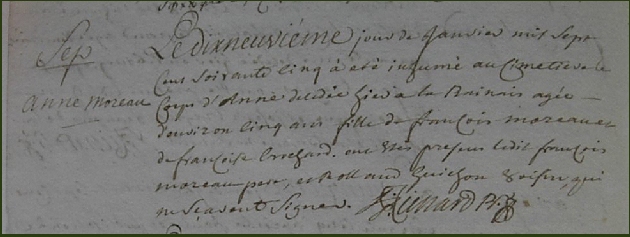 Sep
anne moreau
Le dixneuviéme jour de Janvier mil sept
cent soixante cinq à été inhumé au Cimetiere le
Corps d'Anne decedée hier a la Bainais agée
d'environ cinq ans fille de françois moreau et
de françoise Crichard. ont étés presens ledit françois
moreau pere, et Rolland Guichon voisin, qui
ne scavent signer.